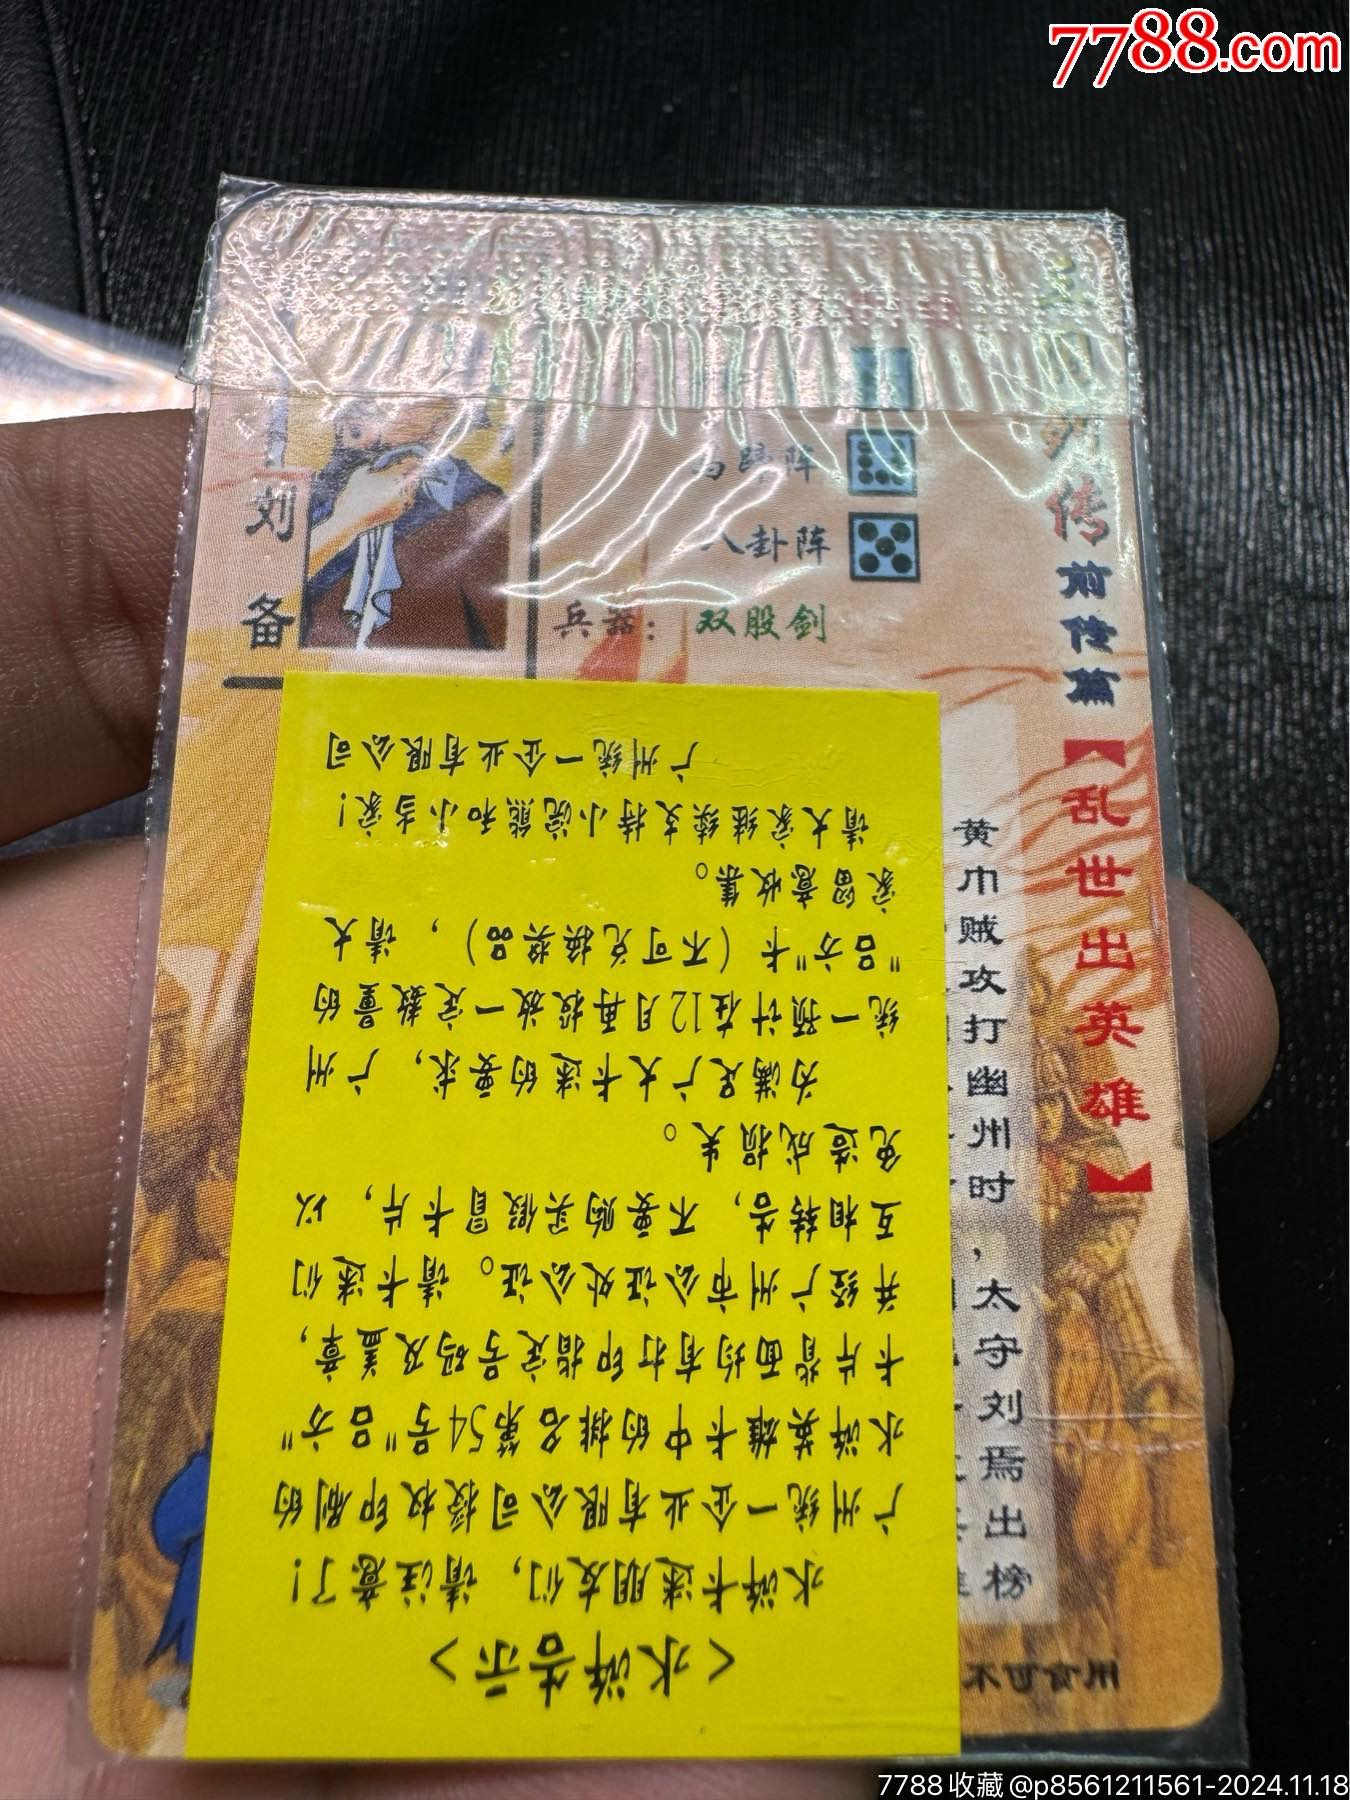 7788.com
刘备
八卦阵
兵器：双股剑
列传
前传篇
【乱世出英雄】
黄巾贼攻打幽州时，太守刘焉出榜
不可食用
<水浒告示>
水浒卡迷朋友们，请注意了！
广州统一企业有限公司授权印刷的
水浒英雄卡中的排名第54号"吕方"
卡片背面均有打印指定号码及盖章，
并经广州市公证处公证。请卡迷们
互相转告，不要购买假冒卡片，以
免造成损失。
为满足广大卡迷的要求，广州
统一预计在12月再投放一定数量的
"吕方"卡（不可兑换奖品），请大
家留意收集。
请大家继续支持小浣熊和小当家！
广州统一企业有限公司
7788收藏@p8561211561-2024.11.18